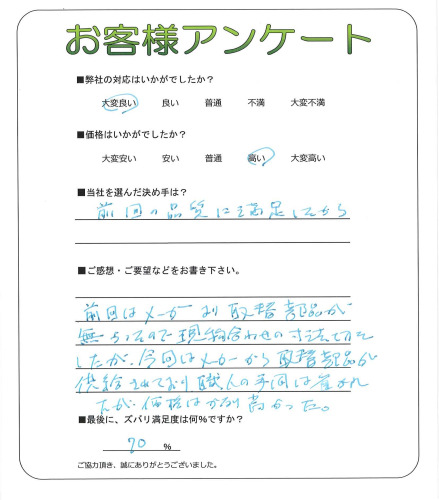 お客様アンケート
■弊社の対応はいかがでしたか？
大変良い 良い 普通 不満 大変不満
■価格はいかがでしたか？
大変安い 安い 普通 高い 大変高い
■当社を選んだ決め手は？
前回の品質に満足したから
■ご感想・ご要望などをお書き下さい。
前回はメーカーより取替部品が
無かったので現物合わせの寸法で
したが、今回はメーカーから取替部品が
供給されており職人の手間は省かれ
たが、価格はかなり高かった。
■最後に、ズバリ満足度は何％ですか？
70 ％
ご協力頂き、誠にありがとうございました。